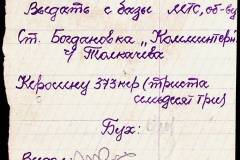 Выдать с базы МТС, об-ву
Ст. Богдановка „Коминтерн"
ч/ Толкачева
Керосину 373 кгр (триста
семьдесят три)
Бух: